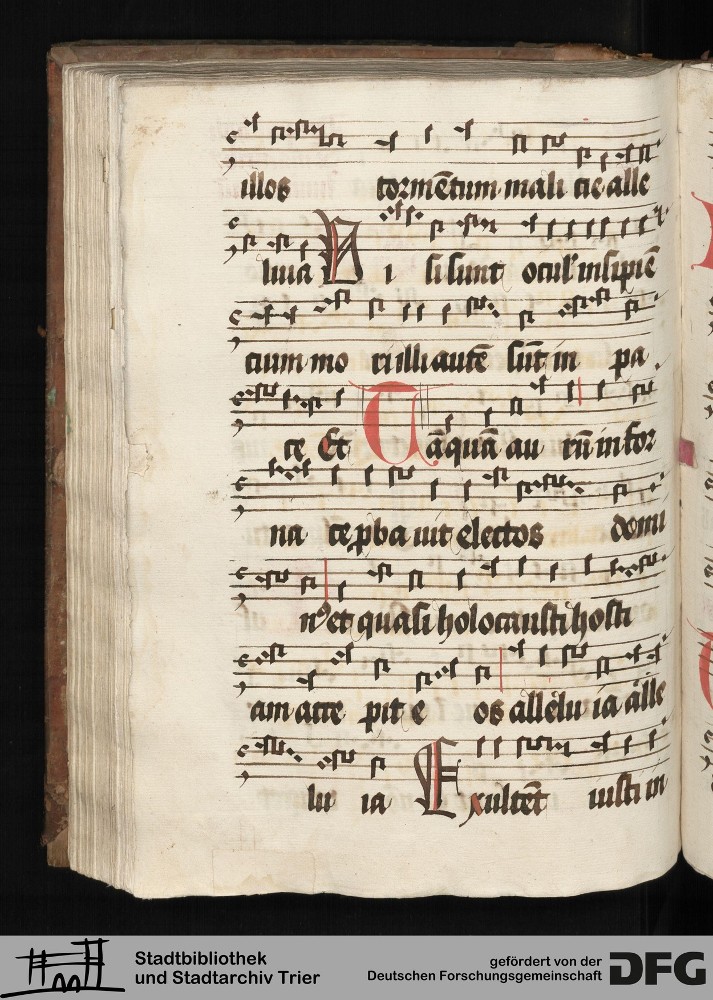 illos tormētum mali cie alle
luia U i si sunt ocul' insipiē
cium mo ri illi autē sūt in pa
ce Et Tāquā au rū in for
na ce pba uit electos domi
n9 et quasi holocausti hosti
am acce pit e os allelu ia alle
lu ia Exultēt iusti in
Stadtbibliothek
und Stadtarchiv Trier
gefördert von der
Deutschen Forschungsgemeinschaft
DFG